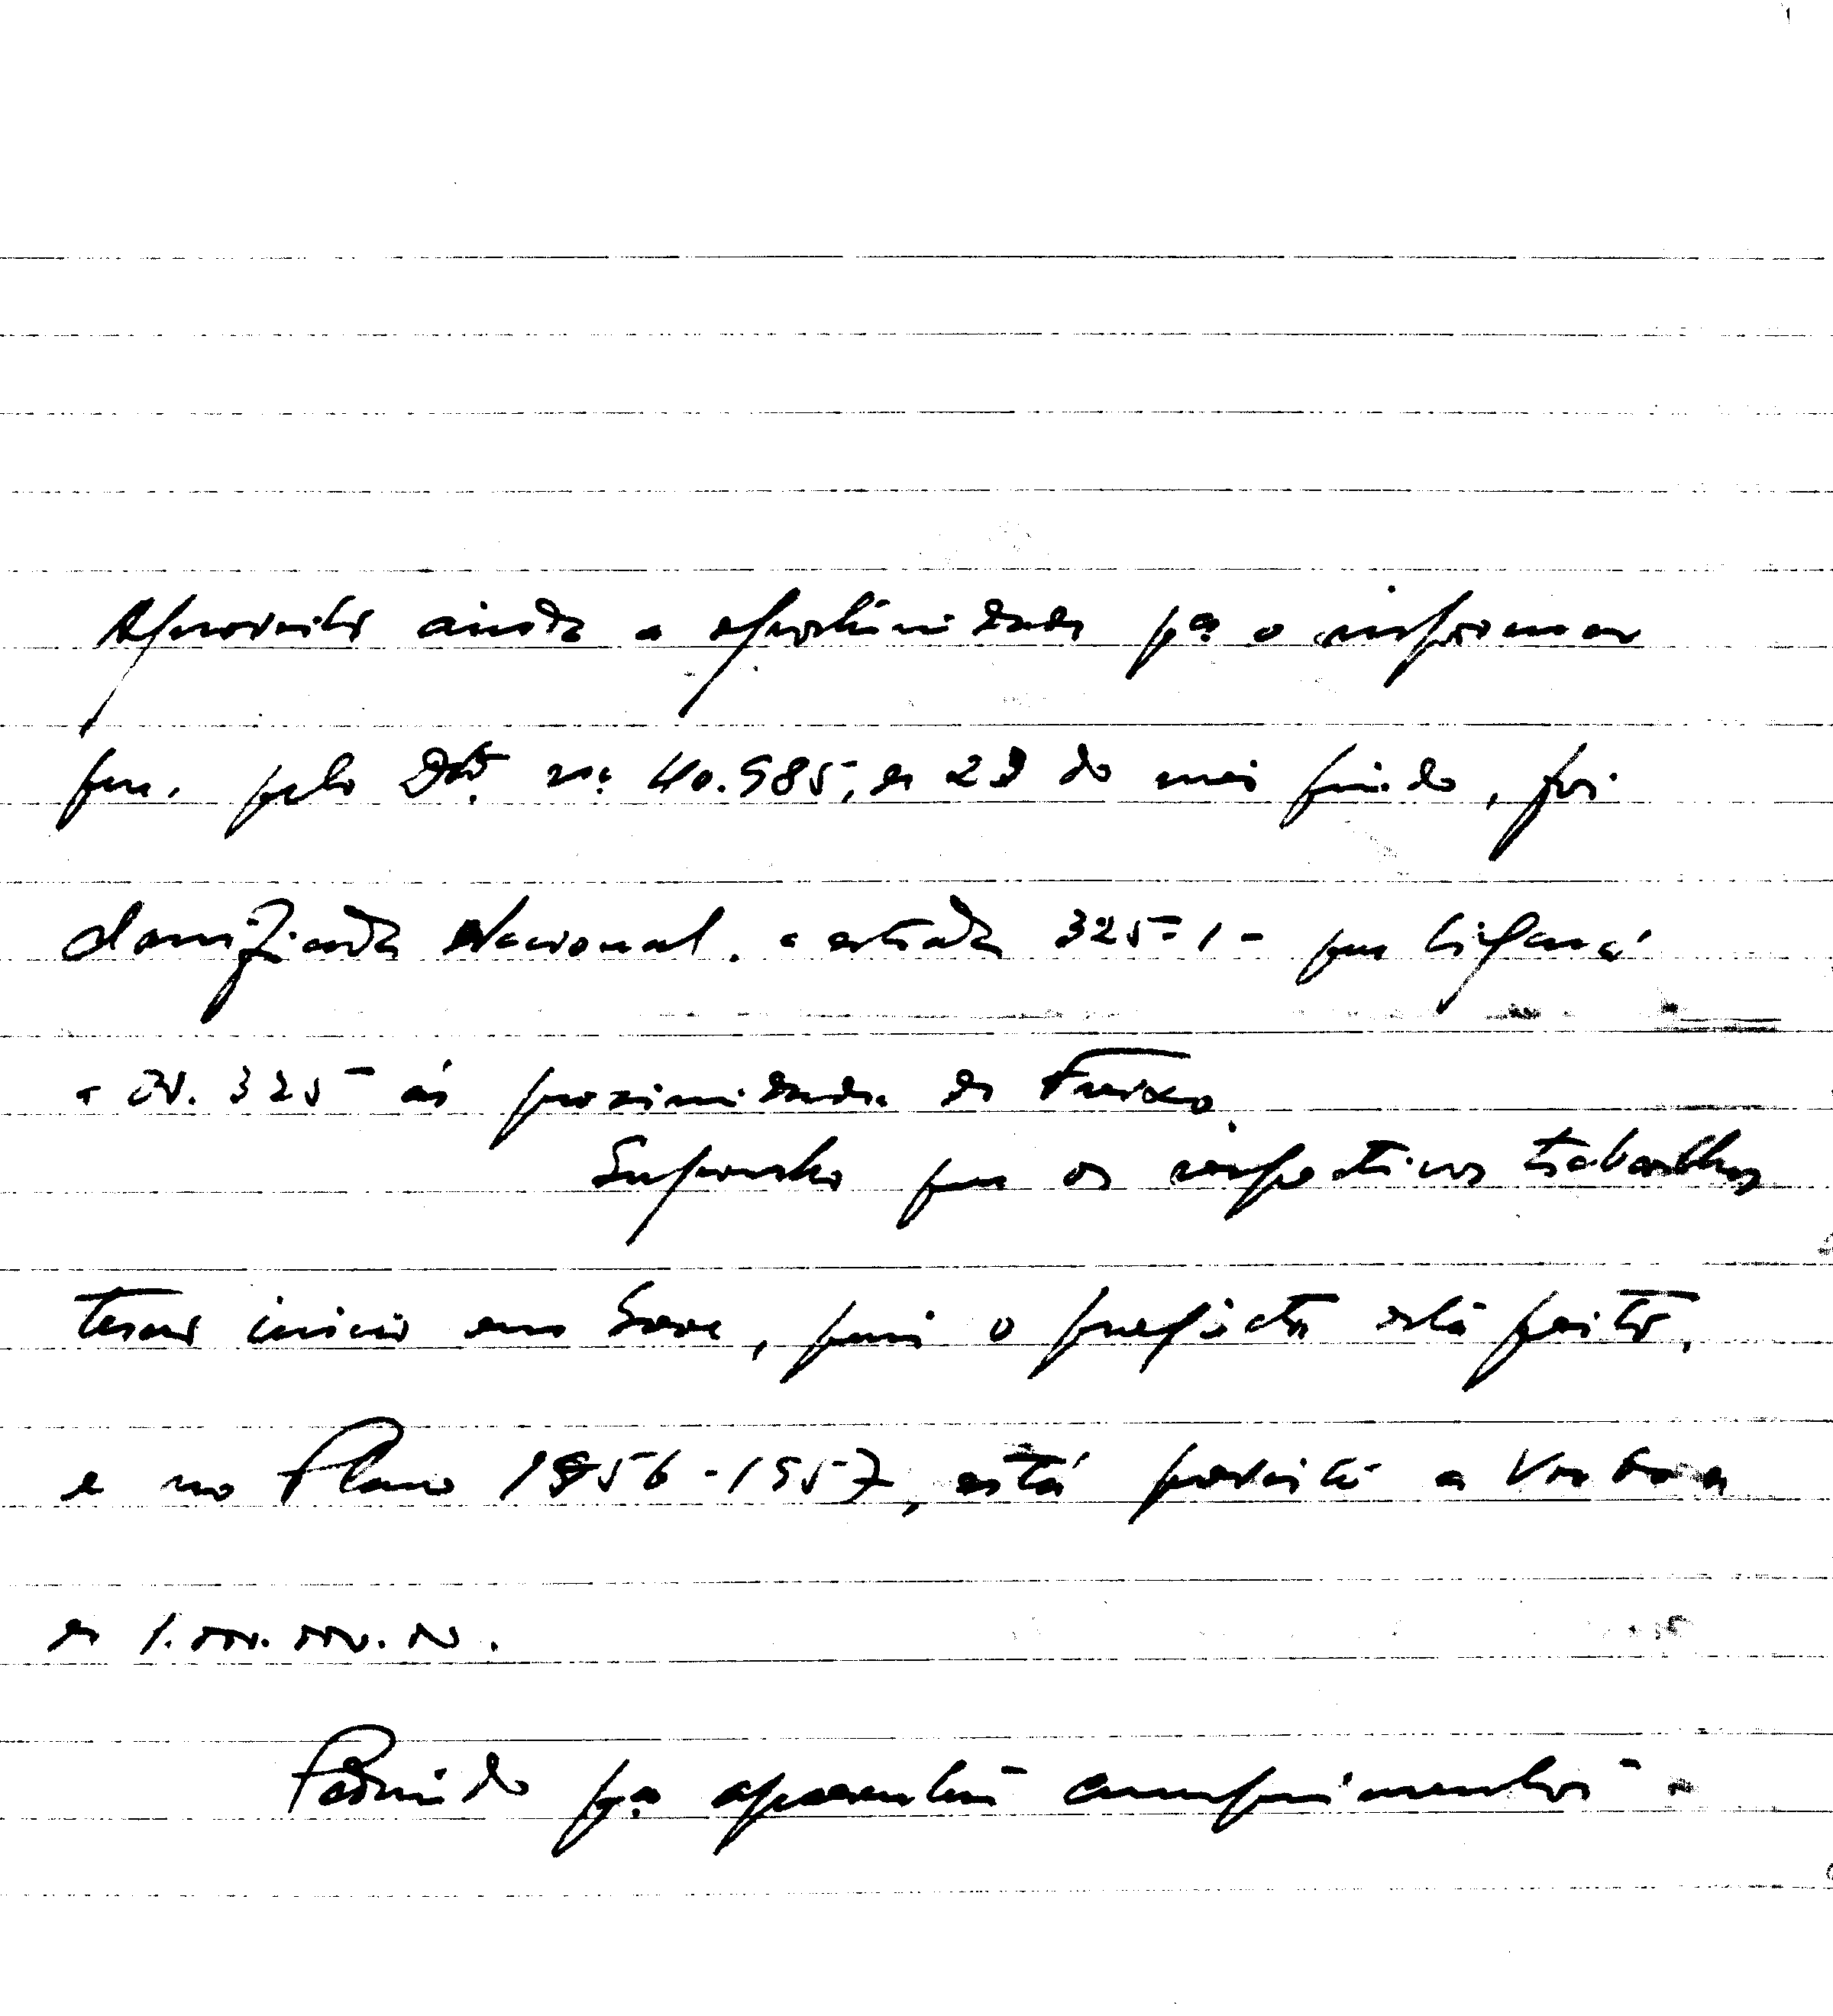 Aproveito ainda a oportunidade pª o informar
que, pelo Dtº. nº. 40.985, de 23 do mês findo, foi
classificada Nacional, a estrada 325-1 - que ligará
a N. 325 às proximidades de Freixo.
Suponho que os respectivos trabalhos
terão início em breve, pois o projecto está feito,
e no Plano 1956-1957, está prevista a verba
de 1.000.000.00.
pª apresentar cumprimentos